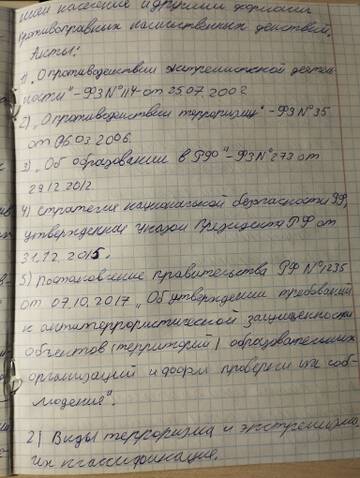 нием населения и другими формами
противоправных насильственных действий.
Акты:
1) "О противодействии экстремистской деятель-
ности" - ФЗ №114 от 25.07 2002
2) "О противодействии терроризму" - ФЗ №35
от 06.03 2006
3) "Об образовании в РФ" - ФЗ №273 от
29.12.2012.
4) стратегия национальной безопасности РФ,
утвержденная указом Президента РФ от
31.12. 2015.
5) Постановление правительства РФ №1235
от 07.10.2017 "Об утверждении требований
к антитеррористической защищенности
объектов (территорий) образовательных
организаций и форм проверки их соб-
людения".
2) Виды терроризма и экстремизма
их классификация.